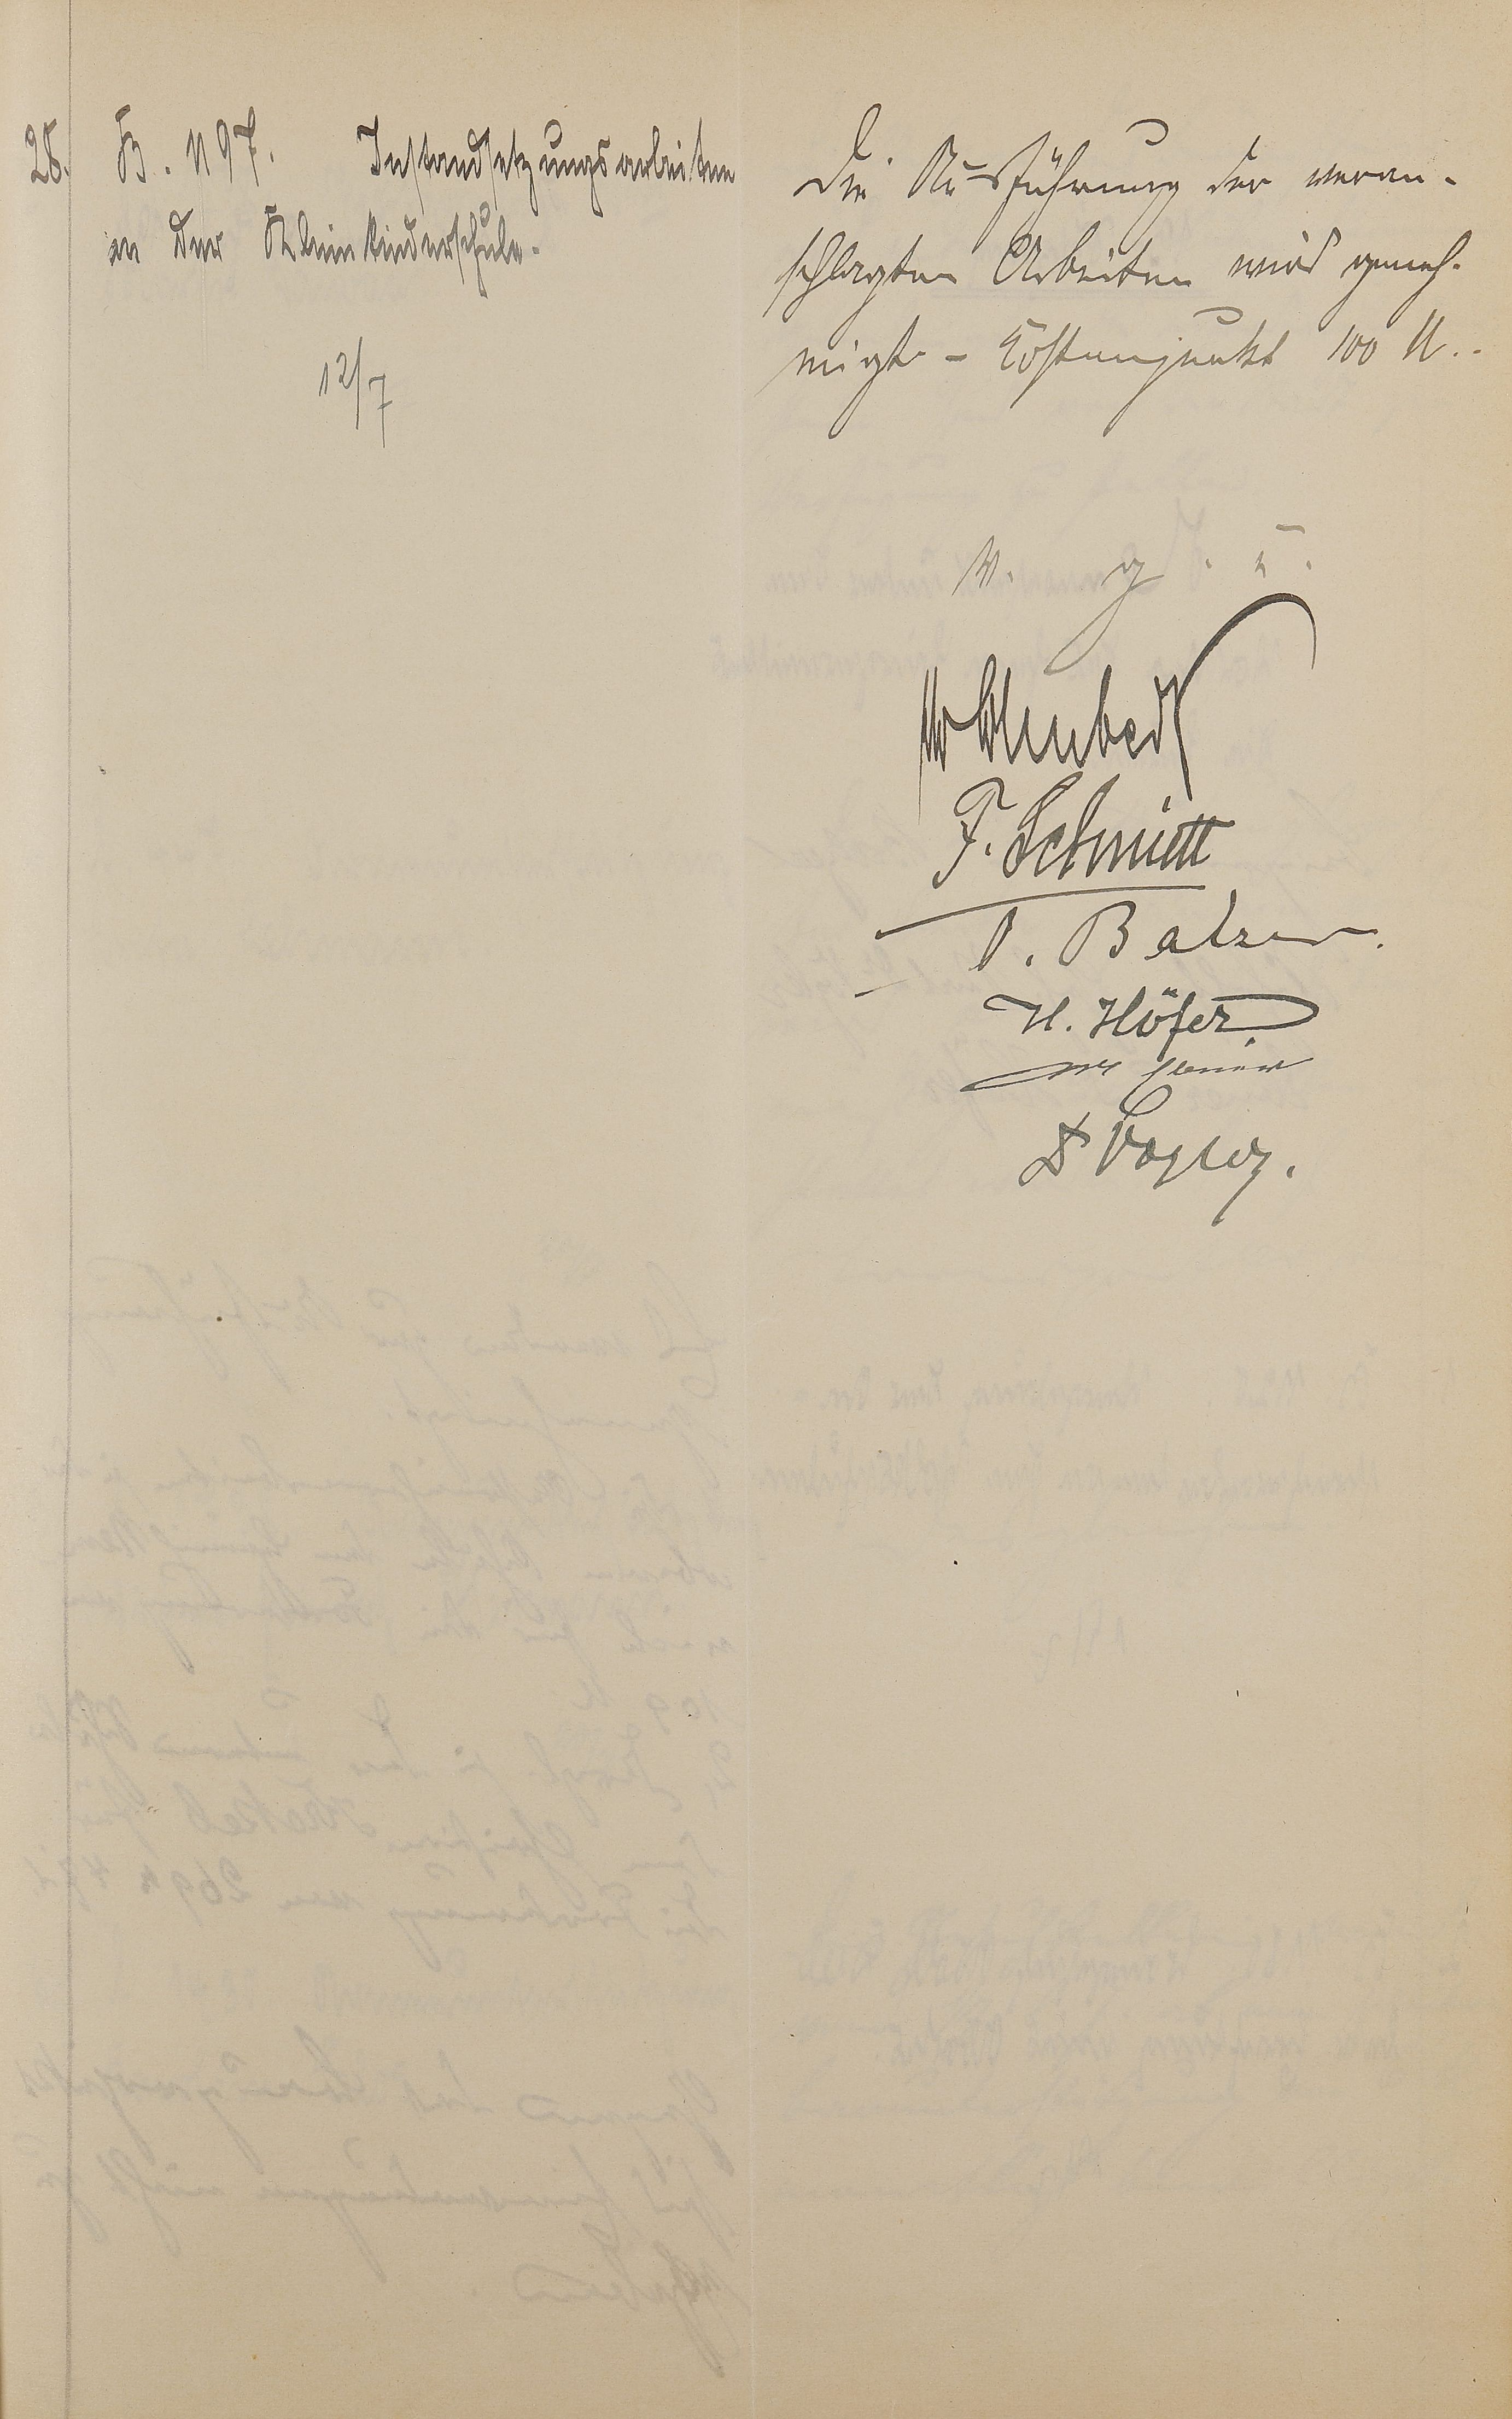 28. B. 1197. Instandsetzungsarbeiten
an der Kleinkinderschule.
12/7
Die Ausführung der veran-
schlagten Arbeiten wird geneh-
migt - Kostenpunkt 100 M..
v. g. u.
F. Schmitt
P. Balzer.
H. Höfer.